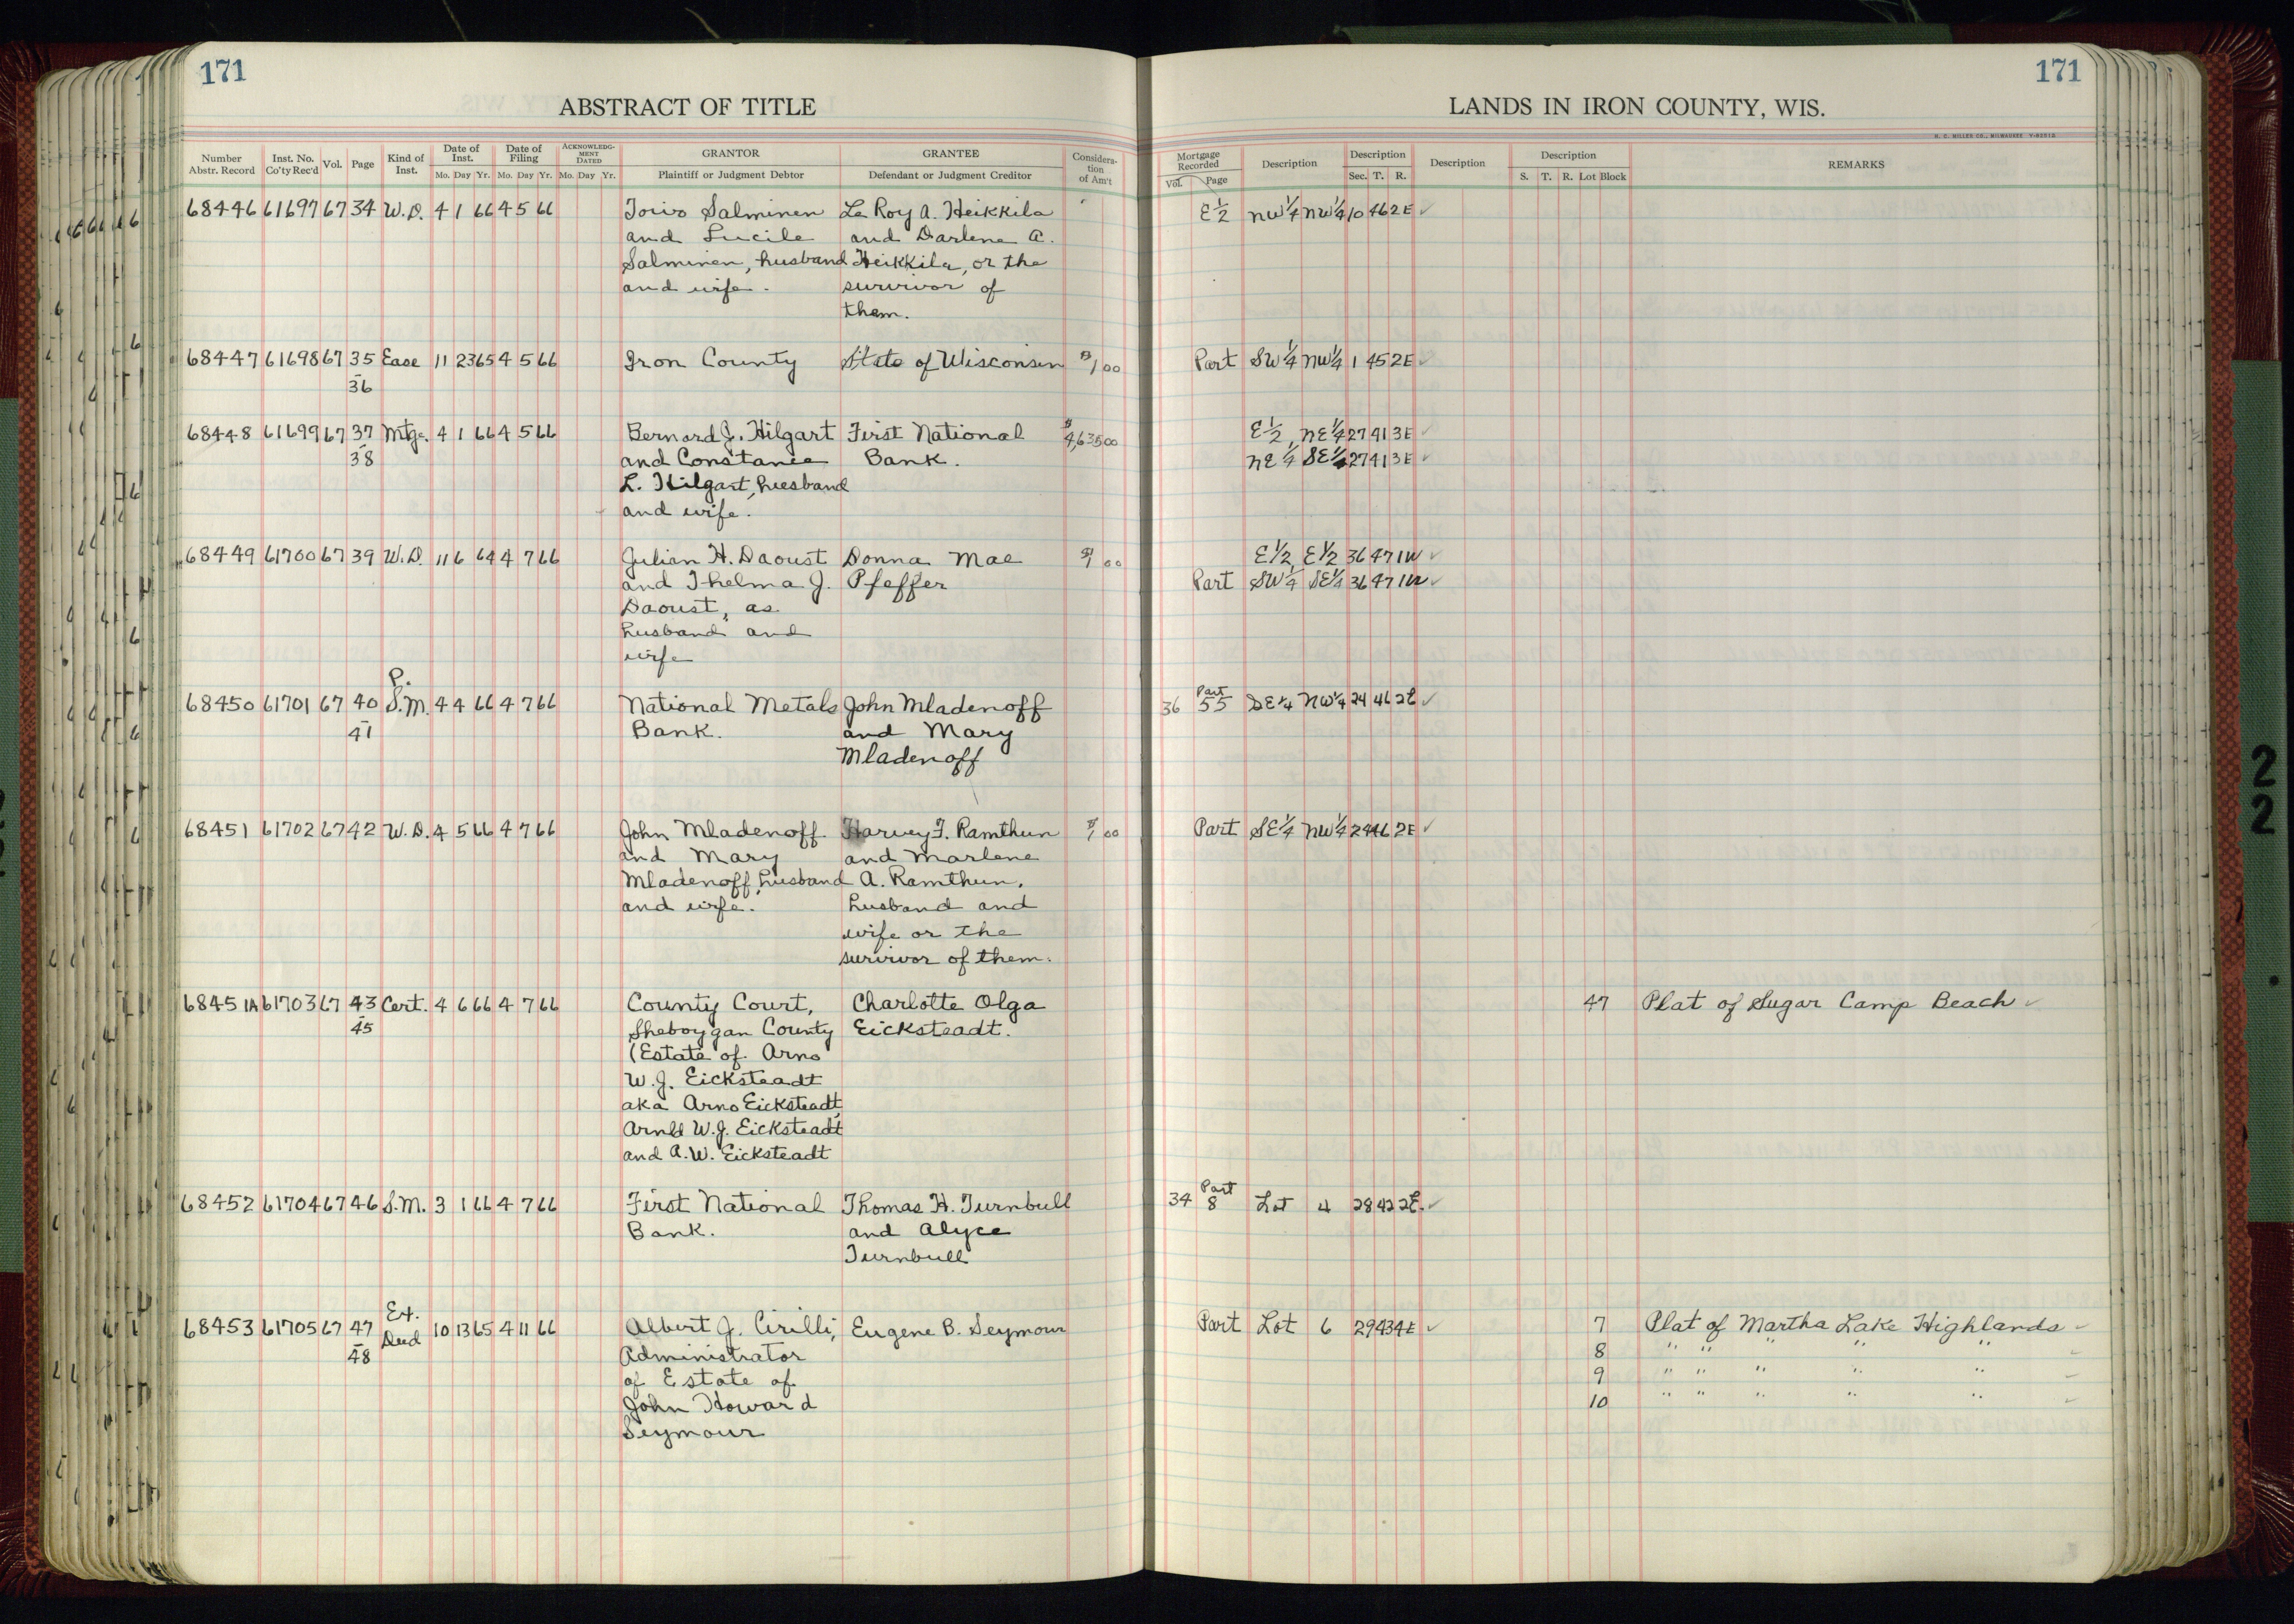 171
ABSTRACT OF TITLE
Number Abstr. Record Inst. No. Co'ty Rec'd Vol. Page Kind of Inst. Date of Inst. Mo. Day Yr. Date of Filing Mo. Day Yr. ACKNOWLEDGMENT DATED Mo. Day Yr. GRANTOR Plaintiff or Judgment Debtor GRANTEE Defendant or Judgment Creditor Consideration of Am't
68446 61697 67 34 W.D. 4 1 66 4 5 66 Toivo Salminen Le Roy A. Heikkila
and Lucile and Darlene A.
Salminen, husband Heikkila, or the
and wife. survivor of
them.
68447 61698 67 35 Ease 11 23 65 4 5 66 Iron County State of Wisconsin $1 00
-
36
68448 61699 67 37 Mtge. 4 1 66 4 5 66 Bernard J. Hilgart First National $4,635 00
38 and Constance Bank.
L. Hilgart, husband
and wife.
68449 61700 67 39 W.D. 11 6 64 4 7 66 Julian H. Daoust Donna Mae $1 00
and Thelma J. Pfeffer
Daoust, as
husband and
wife
P.
68450 61701 67 40 S.M. 4 4 66 4 7 66 National Metals John Mladenoff
-
41 Bank. and Mary
Mladenoff
68451 61702 67 42 W.D. 4 5 66 4 7 66 John Mladenoff Harvey F. Ramthun $1 00
and Mary and Marlene
Mladenoff, husband A. Ramthun,
and wife. husband and
wife or the
survivor of them.
68451A 61703 67 43 Cert. 4 6 66 4 7 66 County Court, Charlotte Olga
-
45 Sheboygan County Eicksteadt.
(Estate of Arno
W.J. Eicksteadt
aka Arno Eicksteadt,
Arnld W.J. Eicksteadt
and A.W. Eicksteadt
68452 61704 67 46 S.M. 3 1 66 4 7 66 First National Thomas H. Turnbull
Bank. and Alyce
Turnbull
Ex.
68453 61705 67 47 Deed 10 13 65 4 11 66 Albert J. Cirilli, Eugene B. Seymour
-
48 Administrator
of Estate of
John Howard
Seymour
171
LANDS IN IRON COUNTY, WIS.
H. C. MILLER CO., MILWAUKEE
Mortgage Recorded Vol. Page Description Description Sec. T. R. Description Description S. T. R. Lot Block REMARKS
E½ NW¼ NW¼ 10 46 2E ✓
Part SW¼ NW¼ 1 45 2E ✓
E½, NE¼ 27 41 3E ✓
NE¼ SE¼ 27 41 3E ✓
E½, E½ 36 47 1W ✓
Part SW¼ SE¼ 36 47 1W ✓
Part
36 55 SE¼ NW¼ 24 46 2E ✓
Part SE¼ NW¼ 24 46 2E ✓
47 Plat of Sugar Camp Beach ✓
Part
34 8 Lot 4 28 42 2E. ✓
Part Lot 6 29 43 4E ✓ 7 Plat of Martha Lake Highlands ✓
8 " " " " " ✓
9 " " " " " ✓
10 " " " " " ✓
2
2